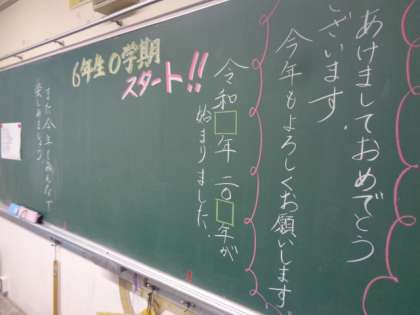 あけましておめでとう
ございます.
今年もよろしくお願いします
令和□年 二〇□年が
始まりました.
6年生0学期
スタート!!
また今年もみんなで
楽しみましょう.